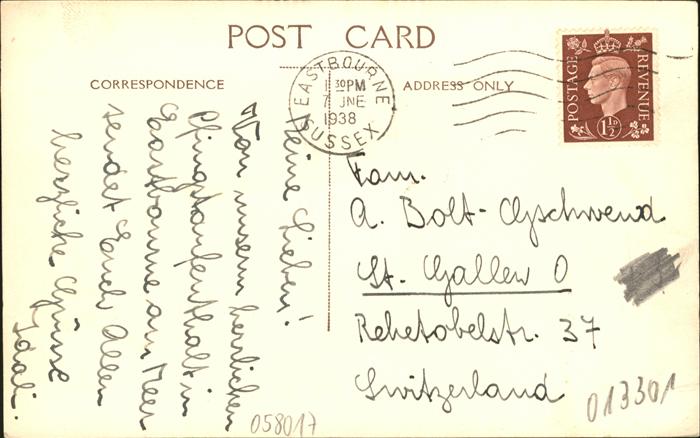 POST CARD
CORRESPONDENCE
ADDRESS ONLY
EASTBOURNE
1 30PM
7 JNE
1938
SUSSEX
POSTAGE
REVENUE
1½D
Meine Lieben!
Von unserm herrlichen
Pfingstaufenthalt in
Eastbourne am Meer
sendet Euch Allen
herzliche Grüsse
Idali.
Fam.
A. Bolt-Gschwend
St. Gallen O
Rehetobelstr. 37
Switzerland
013301
058017